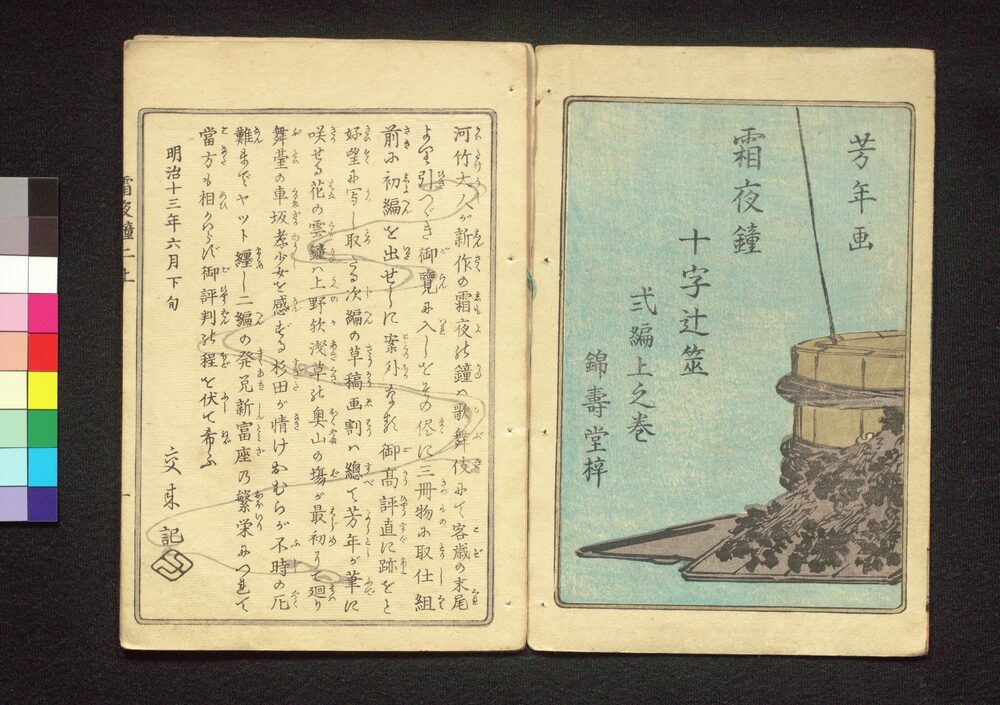 芳年画
霜夜鐘
十字辻筮
弐編上之巻
錦壽堂梓
河竹大人が新作の霜夜の鐘ハ歌舞伎にて客歳の末尾
より引つゞき御覧に入しをその侭に三冊物に取仕組
前に初編を出せしに案外なる御高評直に跡をと
好望に写し取たる次編の草稿画割ハ總て芳年が筆に
咲せる花の雲鐘ハ上野欤浅草の奥山の塲が最初にて廻り
舞臺の車坂孝少女を感ずる杉田が情けおむらが不時の厄
難までヤット纏し二編の発兌新富座の繁栄につれて
當方も相かはらず御評判の程を伏て希ふ
明治十三年六月下旬
交来記
霜夜鐘二上
一